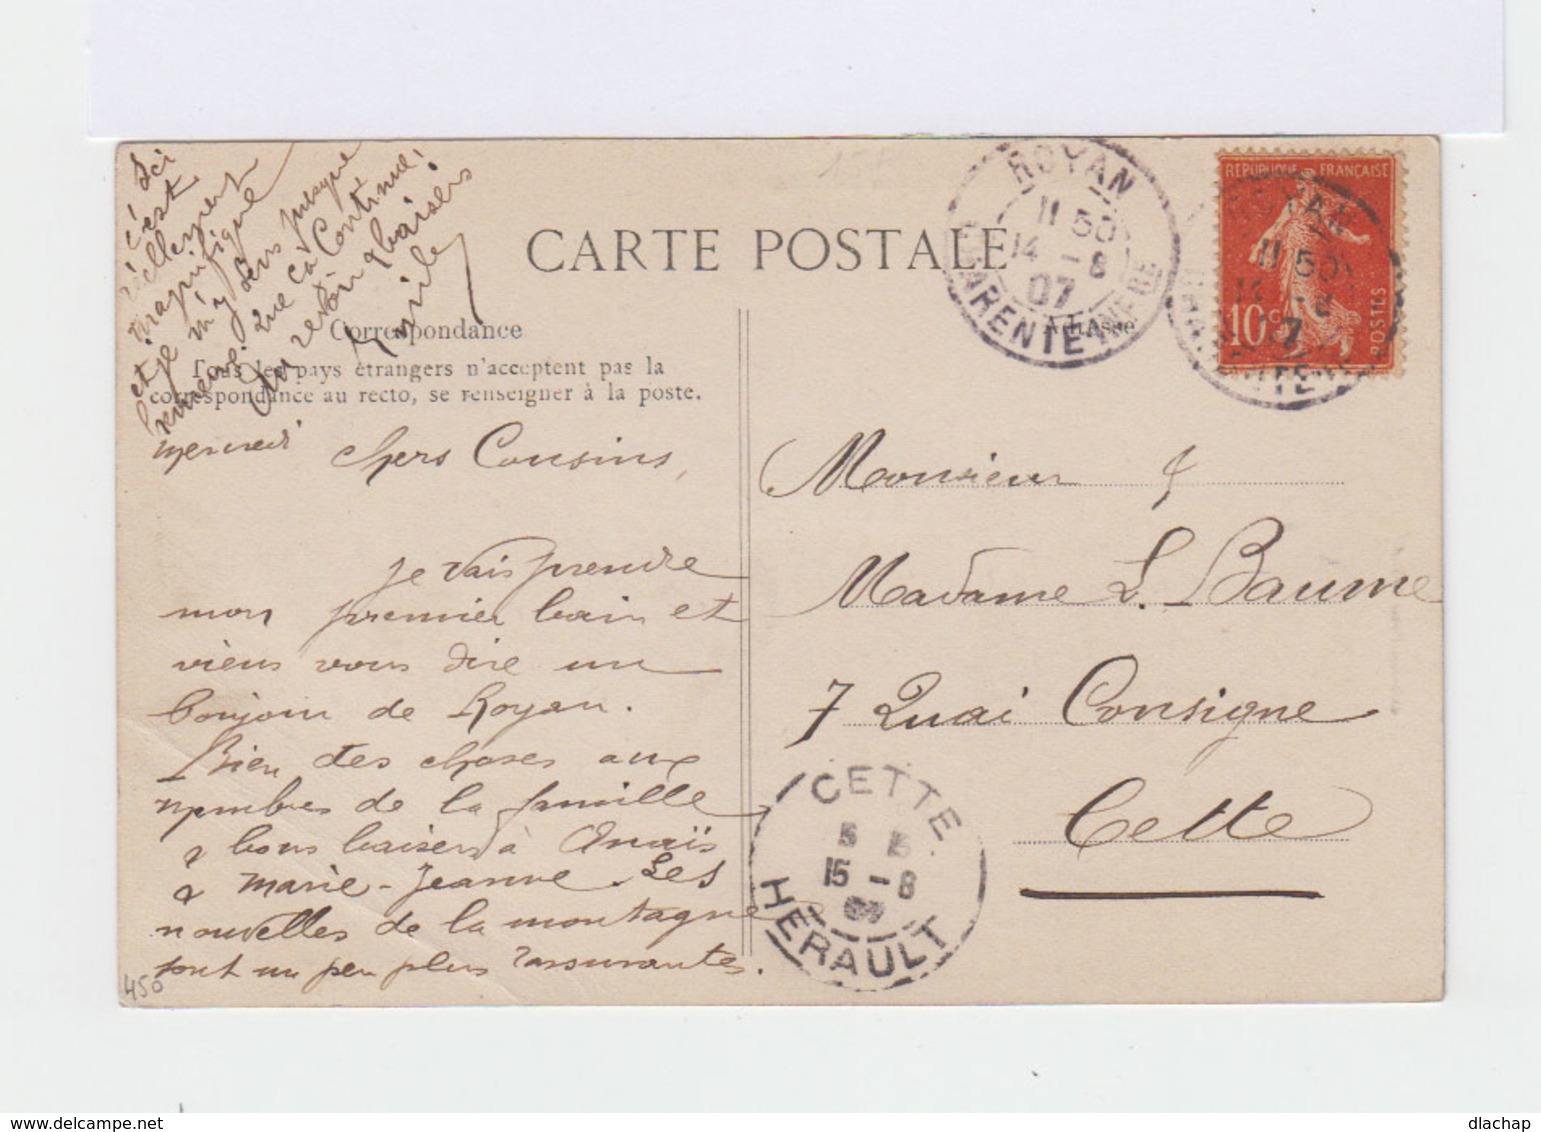 Ici
c'est
réellement
magnifique
et je m'y sens presque
que ça continue,
Au revoir & baisers
CARTE POSTALE
Correspondance
Tous les pays étrangers n'acceptent pas la
correspondance au recto, se renseigner à la poste.
Adresse
ROYAN
11 50
14 - 8
07
CHARENTE INFRE
RÉPUBLIQUE FRANÇAISE
10c
POSTES
ROYAN
11 50
mercredi chers Cousins,
je vais prendre
mon premier bain et
viens vous dire un
bonjour de Royan.
Bien des choses aux
membres de la famille
& bons baisers à Anaïs
& Marie-Jeanne. Les
nouvelles de la montagne
sont un peu plus rassurantes.
450
Monsieur &
Madame L. Baume
7 Quai Consigne
Cette
CETTE
5 5
15 - 8
HERAULT
delcampe.net
dlachap